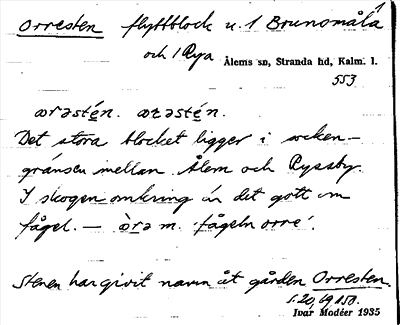 Orresten flyttblock u. 1 Brunsmåla 1
och 1 Rya Ålems sn, Stranda hd, Kalm. l.
553
orəstén. oṛəstén.
Det stora blocket ligger i socken-
gränsen mellan Ålem och Ryssby.
I skogen omkring är det gott om
fågel. — òrə m. 'fågeln orre'.
Stenen har givit namn åt gården Orresten.
Ivar Modéer 1935